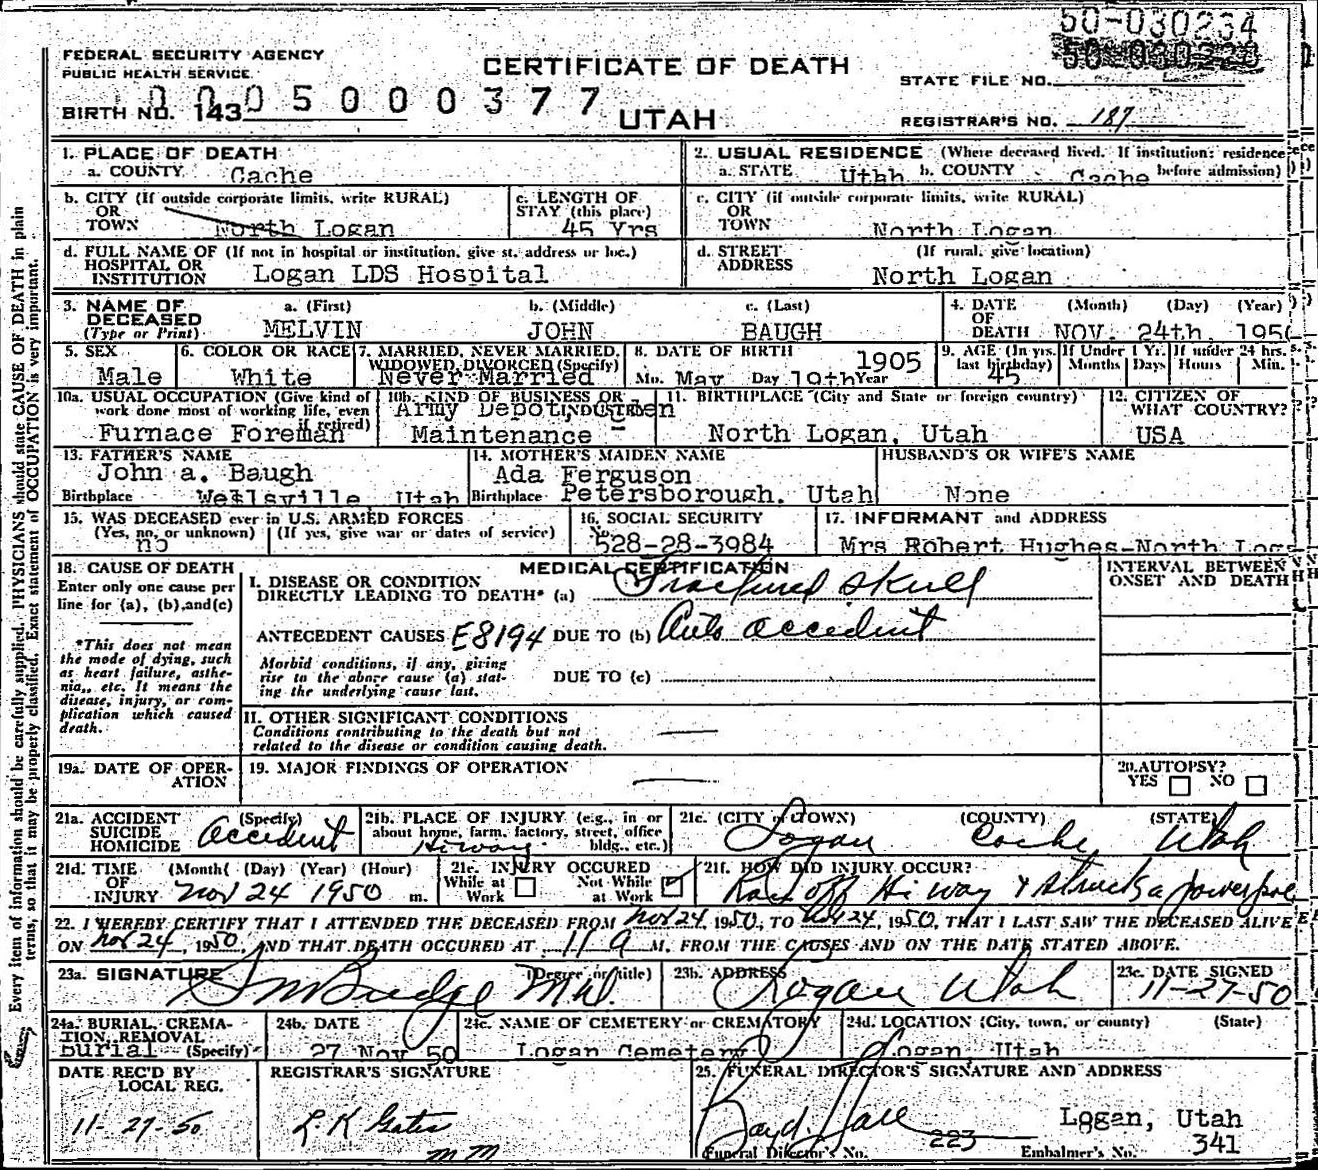 50-030234
FEDERAL SECURITY AGENCY
PUBLIC HEALTH SERVICE
CERTIFICATE OF DEATH
STATE FILE NO.
BIRTH NO. 143
0005000377
UTAH
REGISTRAR'S NO. 187
1. PLACE OF DEATH
a. COUNTY Cache
2. USUAL RESIDENCE (Where deceased lived. If institution: residence before admission)
a. STATE Utah b. COUNTY Cache
b. CITY (If outside corporate limits, write RURAL)
OR
TOWN North Logan
c. LENGTH OF
STAY (this place)
45 Yrs
c. CITY (if outside corporate limits, write RURAL)
OR
TOWN North Logan
d. FULL NAME OF (If not in hospital or institution, give st. address or loc.)
HOSPITAL OR
INSTITUTION Logan LDS Hospital
d. STREET (If rural, give location)
ADDRESS North Logan
3. NAME OF
DECEASED
(Type or Print)
a. (First) b. (Middle) c. (Last)
MELVIN JOHN BAUGH
4. DATE (Month) (Day) (Year)
OF
DEATH NOV. 24th, 1950
5. SEX
Male
6. COLOR OR RACE
White
7. MARRIED, NEVER MARRIED,
WIDOWED, DIVORCED (Specify)
Never Married
8. DATE OF BIRTH 1905
Mo. May Day 19th Year
9. AGE (In yrs.
last birthday)
45
If Under 1 Yr.
Months Days
If under 24 hrs.
Hours Min.
10a. USUAL OCCUPATION (Give kind of
work done most of working life, even
if retired)
Furnace Foreman
10b. KIND OF BUSINESS OR
INDUSTRY
Army Depot,
Maintenance
11. BIRTHPLACE (City and State or foreign country)
North Logan, Utah
12. CITIZEN OF
WHAT COUNTRY?
USA
13. FATHER'S NAME
John a. Baugh
Birthplace Wellsville Utah
14. MOTHER'S MAIDEN NAME
Ada Ferguson
Birthplace Petersborough, Utah
HUSBAND'S OR WIFE'S NAME
None
15. WAS DECEASED ever in U.S. ARMED FORCES
(Yes, no, or unknown) (If yes, give war or dates of service)
no
16. SOCIAL SECURITY
No.
528-28-3984
17. INFORMANT and ADDRESS
Mrs Robert Hughes-North Log
18. CAUSE OF DEATH
Enter only one cause per
line for (a), (b), and (c)
*This does not mean
the mode of dying, such
as heart failure, asthe-
nia, etc. It means the
disease, injury, or com-
plication which caused
death.
MEDICAL CERTIFICATION
I. DISEASE OR CONDITION
DIRECTLY LEADING TO DEATH* (a) Fractured skull
ANTECEDENT CAUSES E8194 DUE TO (b) Auto accident
Morbid conditions, if any, giving
rise to the above cause (a) stat-
ing the underlying cause last.
DUE TO (c)
II. OTHER SIGNIFICANT CONDITIONS
Conditions contributing to the death but not
related to the disease or condition causing death.
INTERVAL BETWEEN
ONSET AND DEATH
19a. DATE OF OPER-
ATION
19. MAJOR FINDINGS OF OPERATION
20. AUTOPSY?
YES NO
21a. ACCIDENT (Specify)
SUICIDE
HOMICIDE
Accident
21b. PLACE OF INJURY (e.g., in or
about home, farm, factory, street, office
bldg., etc.)
Hiway
21c. (CITY or TOWN) (COUNTY) (STATE)
Logan Cache Utah
21d. TIME (Month) (Day) (Year) (Hour)
OF
INJURY Nov 24 1950 m.
21e. INJURY OCCURED
While at Work
Not While at Work
21f. HOW DID INJURY OCCUR?
Ran off Hi way & struck a power pole
22. I HEREBY CERTIFY THAT I ATTENDED THE DECEASED FROM Nov 24, 1950, TO Nov 24, 1950, THAT I LAST SAW THE DECEASED ALIVE
ON Nov 24, 1950, AND THAT DEATH OCCURED AT 11 A M. FROM THE CAUSES AND ON THE DATE STATED ABOVE.
23a. SIGNATURE (Degree or title)
S M Budge M.D.
23b. ADDRESS
Logan Utah
23c. DATE SIGNED
11-27-50
24a. BURIAL, CREMA-
TION, REMOVAL
Burial (Specify)
24b. DATE
27 Nov 50
24c. NAME OF CEMETERY or CREMATORY
Logan Cemetery
24d. LOCATION (City, town, or county) (State)
Logan, Utah
DATE REC'D BY
LOCAL REG.
11-27-50
REGISTRAR'S SIGNATURE
L K Gates
mm
25. FUNERAL DIRECTOR'S SIGNATURE AND ADDRESS
Boyd Hall
Logan, Utah
Funeral Director's No. 223
Embalmer's No. 341
Every item of information should be carefully supplied. PHYSICIANS should state CAUSE OF DEATH in plain
terms, so that it may be properly classified. Exact statement of OCCUPATION is very important.